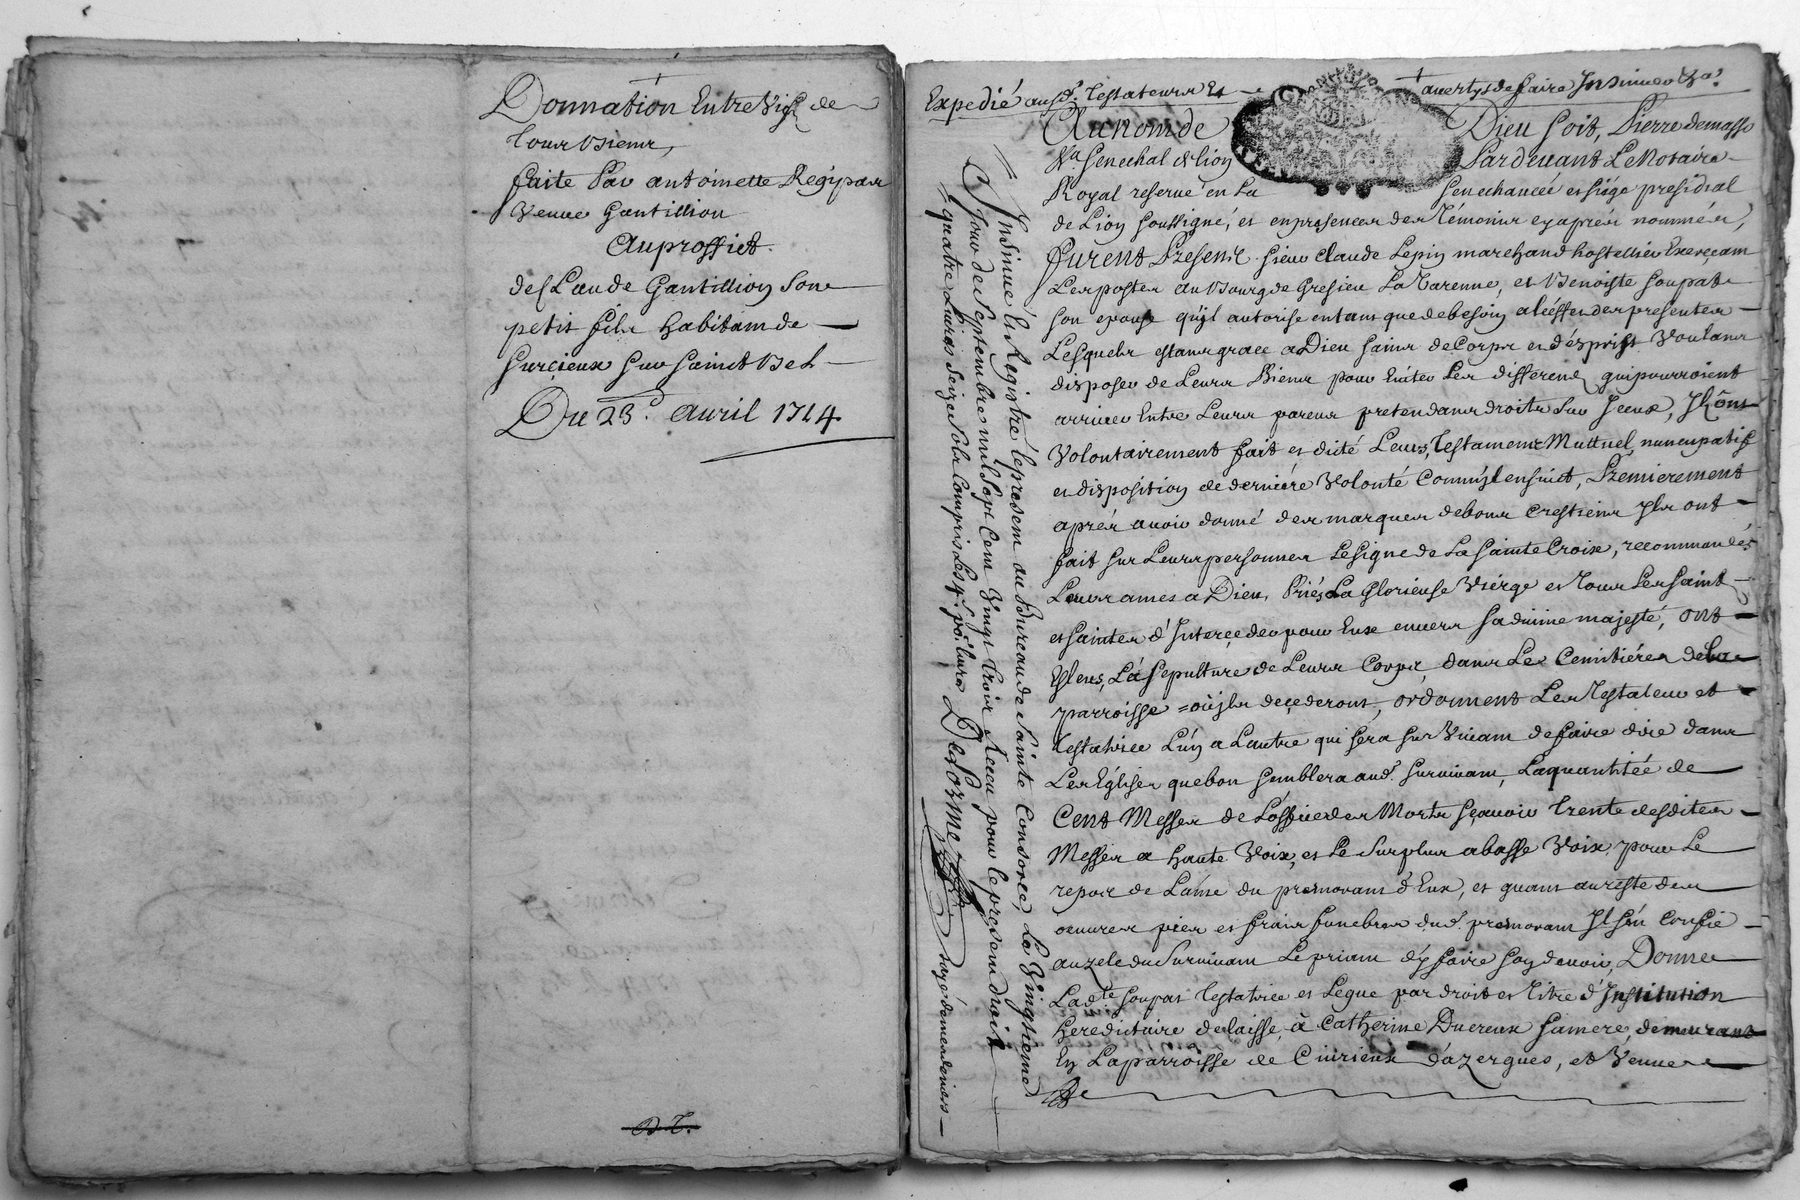 Donnation Entre Vifs de
tous Biens,
faite Par antoinette Regipas
Veuve Gantillion
Au proffict
de Claude Gantillion Son
petit fils habitant de
Surcieux Sur Sainct Bel
Du 23e. Avril 1724
D T.
Expedié ausd. Testateurs Et avertys de faire Insinuer &a
Au nom de Dieu Soit, Pierre de masso
&a Senechal de lion Pardevant Le Notaire
Royal reservé en La Senechaucée et siége presidial
de Lion Soussigné, et en presence des Témoins cy aprés nommés,
furent Presents Sieur Claude Lepin marchand hostellier Exerceant
Les postes au Bourg de Gresieu La Varenne, et Benoiste Soupat
Son epouse qu'jl autorise en tant que de besoin a l'effet des presentes
Lesquels estant grace a Dieu Sains de Corps et d'ésprist Voulant
disposer de Leurs Biens pour Eviter Les differend qui pourroient
arriver Entre Leurs parens pretendants droits Sur Jceux, Jls ont
Volontairement fait et dicté Leurs Testament Muttuel, nuncupatif
et disposition de derniére Volonté Comm'jl ensuit, Premierement
aprés avoir donné des marques de bons Crestiens Jls ont
fait Sur Leurs personnes Le Signe de La Sainte Croix, recommandés
Leurs ames a Dieu, Priés La Glorieuse Viérge et tous Les Saint
et Saintes d'Interçeder pour Eux envers Sa divine majesté, ont
Esleus, La Sepulture de Leurs Corps, dans Les Cemitiéres de la
parroisse où jls deçederont, ordonnent Les Testateur et
testatrice L'ûn a Lautre qui Sera Sur Vivant de faire dire dans
Les Églises que bon Semblera aud. Survivant, La quantitée de
Cent Messes de L'office des Morts Sçavoir trente desdites
Messes a haute Voix, et Le Surplus a basse Voix pour Le
repos de L'ame du premourant d'Eux, et quant au reste des
oeuvres pies et frais funebres dud. premourant Jl S'en Confie
au zele du Survivant Le priant d'y faire Son devoir, Donne
Ladte Soupat Testatrice et Legue par droit et titre d'Institution
hereditaire delaisse à Catherine Ducreux Sa mere, demeurant
En La parroisse de Civrieux d'azergues, et Veuve
Insinué Et Registré le present au Bureau de Sainte Consorce, Le Vingtieme
Jour de Septembre mil Sept Cent Vingt trois Receu pour le present droit
quatre Livres Seize Sols Compris Les 4s. pr. livre Delorme